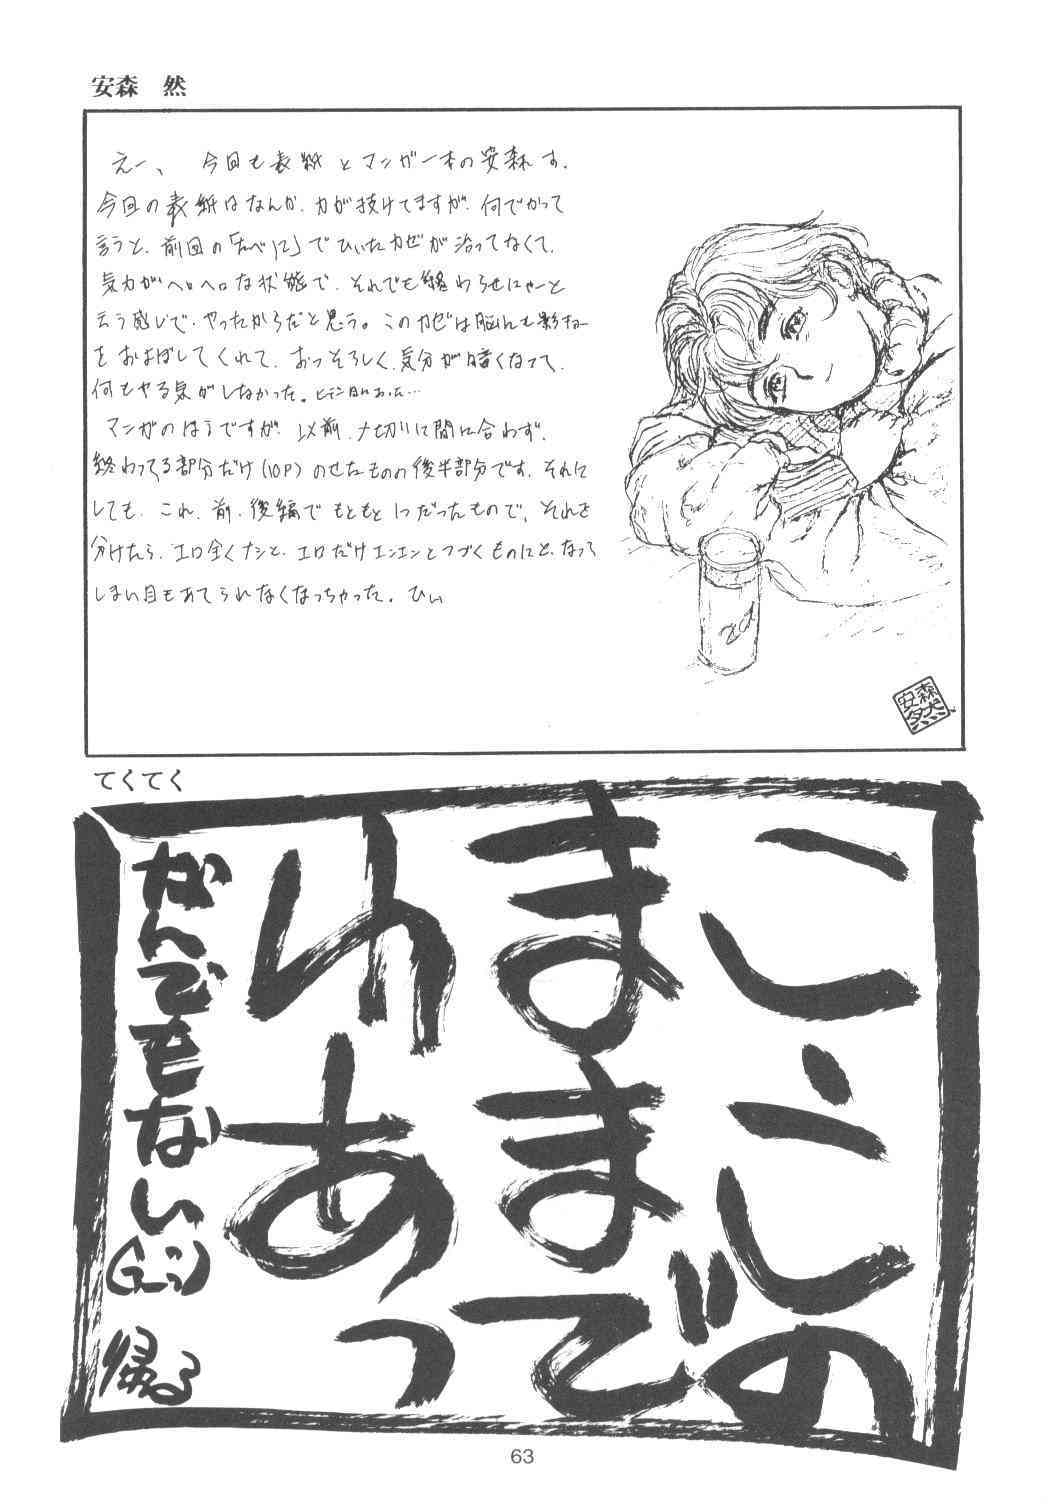 安森　然
えー、　今回も表紙とマンガ一本の安森す.
今回の表紙はなんか.力が抜けてますが.何でかって
言うと、前回の「ナベ12」でひいたカゼが治ってなくて.
気力がヘロヘロな状態で.それでも終わらせにゃーと
云う感じで.やったからだと思う。このカゼは脳にも影キョー
をおよぼしてくれて.おっそろしく.気分が暗くなって.
何もやる気がしなかった。ヒドイ目にあった…
マンガのほうですが.以前.〆切りに間に合わず.
終わってる部分だけ(10P)のせたものの後半部分です.それに
しても.これ.前.後編でもともと1つだったもので、それを
分けたら.エロ全くナシと、エロだけエンエンとつづくものにと、なって
しまい目もあてられなくなっちゃった。ひぃ
2d
安森然
てくてく
こしこしの
ままで
いあっ
なんでもない
帰る
63